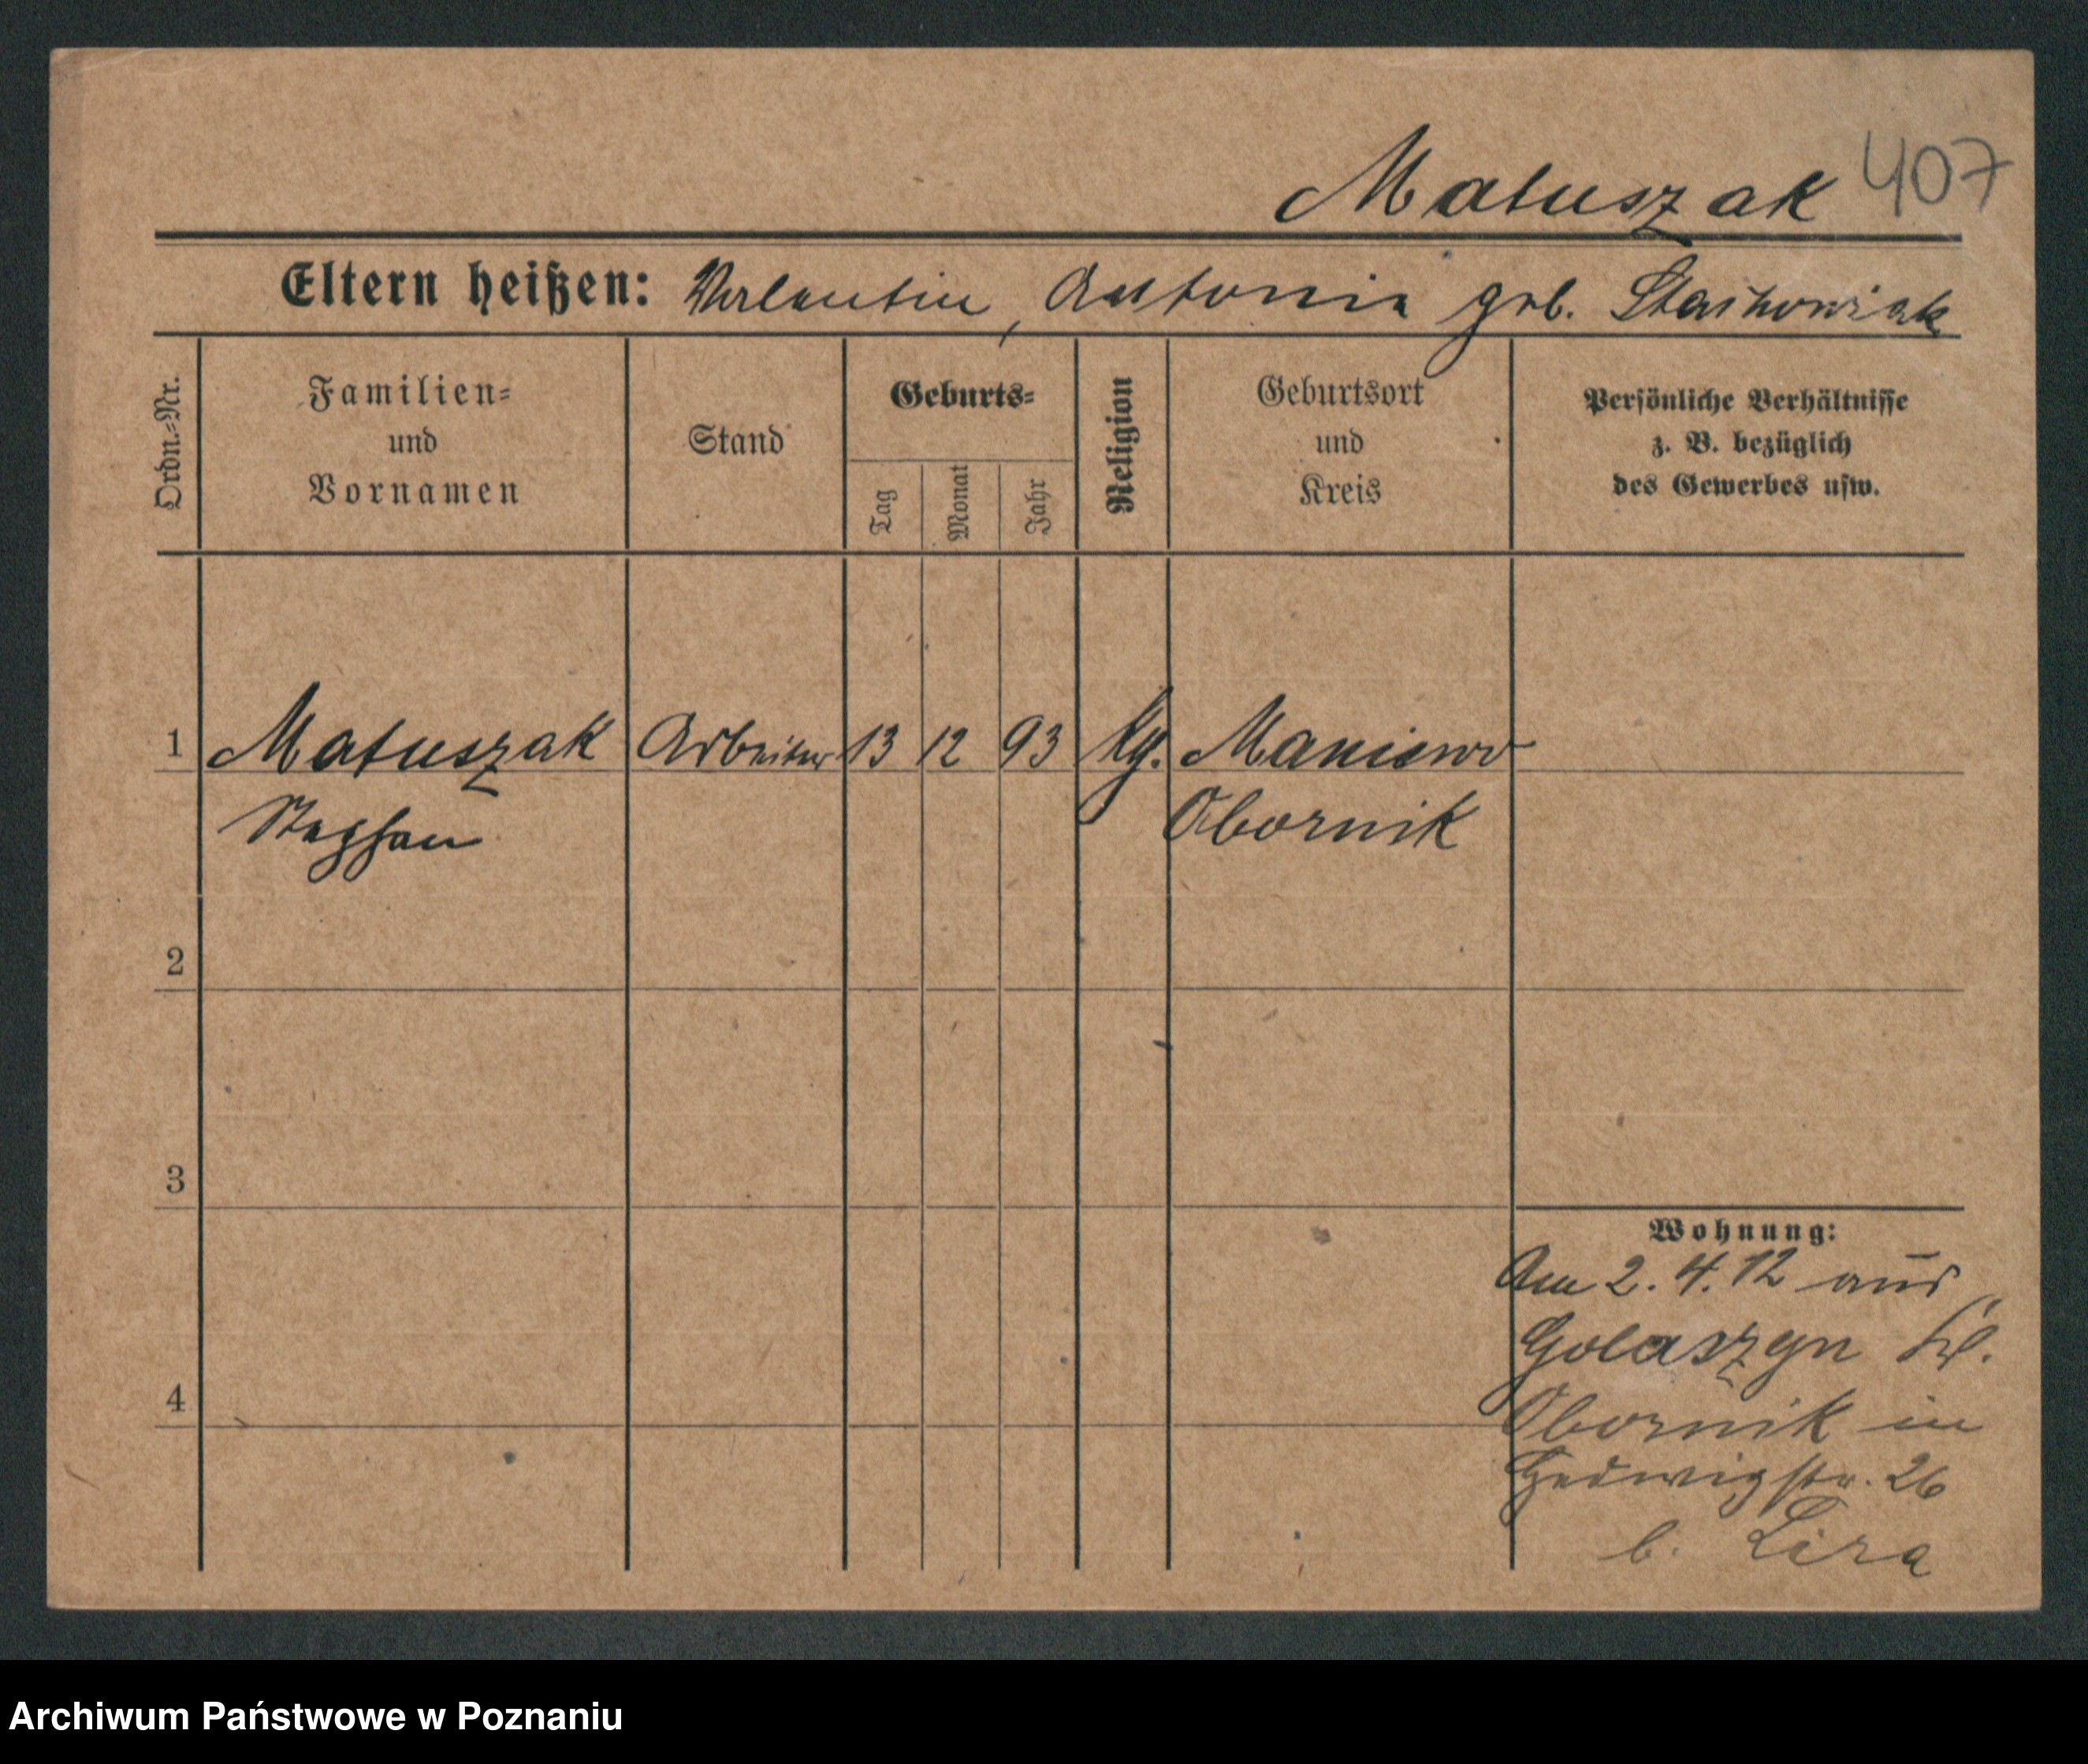 Matuszak 407
Eltern heißen: Valentin, Antonia geb. Stachowiak
Ordn.-Nr.
Familien-
und
Vornamen
Stand
Geburts-
Tag
Monat
Jahr
Religion
Geburtsort
und
Kreis
Persönliche Verhältnisse
z. B. bezüglich
des Gewerbes usw.
1 Matuszak Arbeiter 13 12 93 kg. Maniewo
Stephan Obornik
2
3
Wohnung:
Am 2.4.12 aus
Golaszyn Kr.
4
Obornik in
Hedwigstr. 26
b. Lira
Archiwum Państwowe w Poznaniu